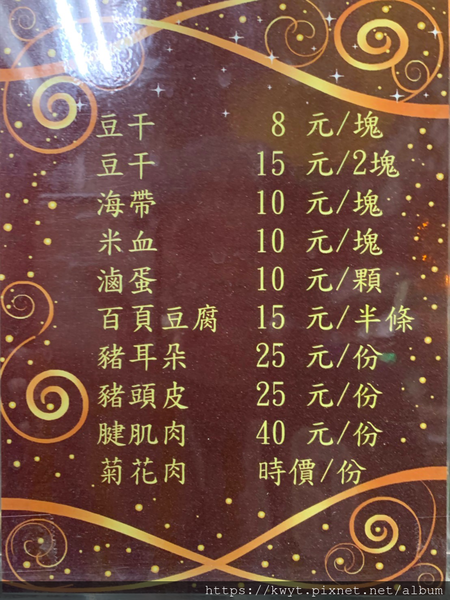 豆干 8 元/塊
豆干 15 元/2塊
海帶 10 元/塊
米血 10 元/塊
滷蛋 10 元/顆
百頁豆腐 15 元/半條
豬耳朵 25 元/份
豬頭皮 25 元/份
腱肌肉 40 元/份
菊花肉 時價/份
https://kwyt.pixnet.net/album